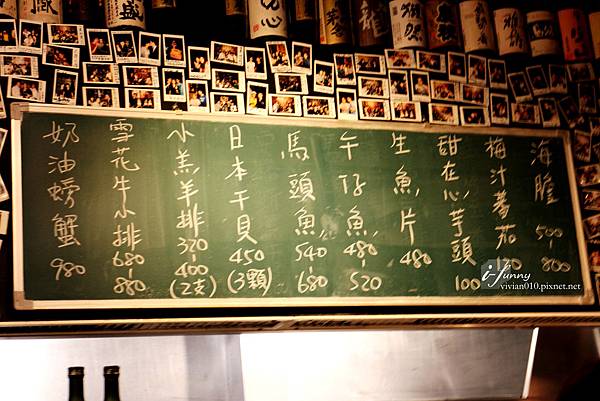 海膽 500-800
梅汁蕃茄 120
甜在心芋頭 100
生魚片 480
午仔魚 480-520
馬頭魚 540-680
日本干貝 450 (3顆)
小羔羊排 320-400 (2支)
雪花牛小排 680-880
奶油螃蟹 980
i-funny
vivian010.pixnet.net